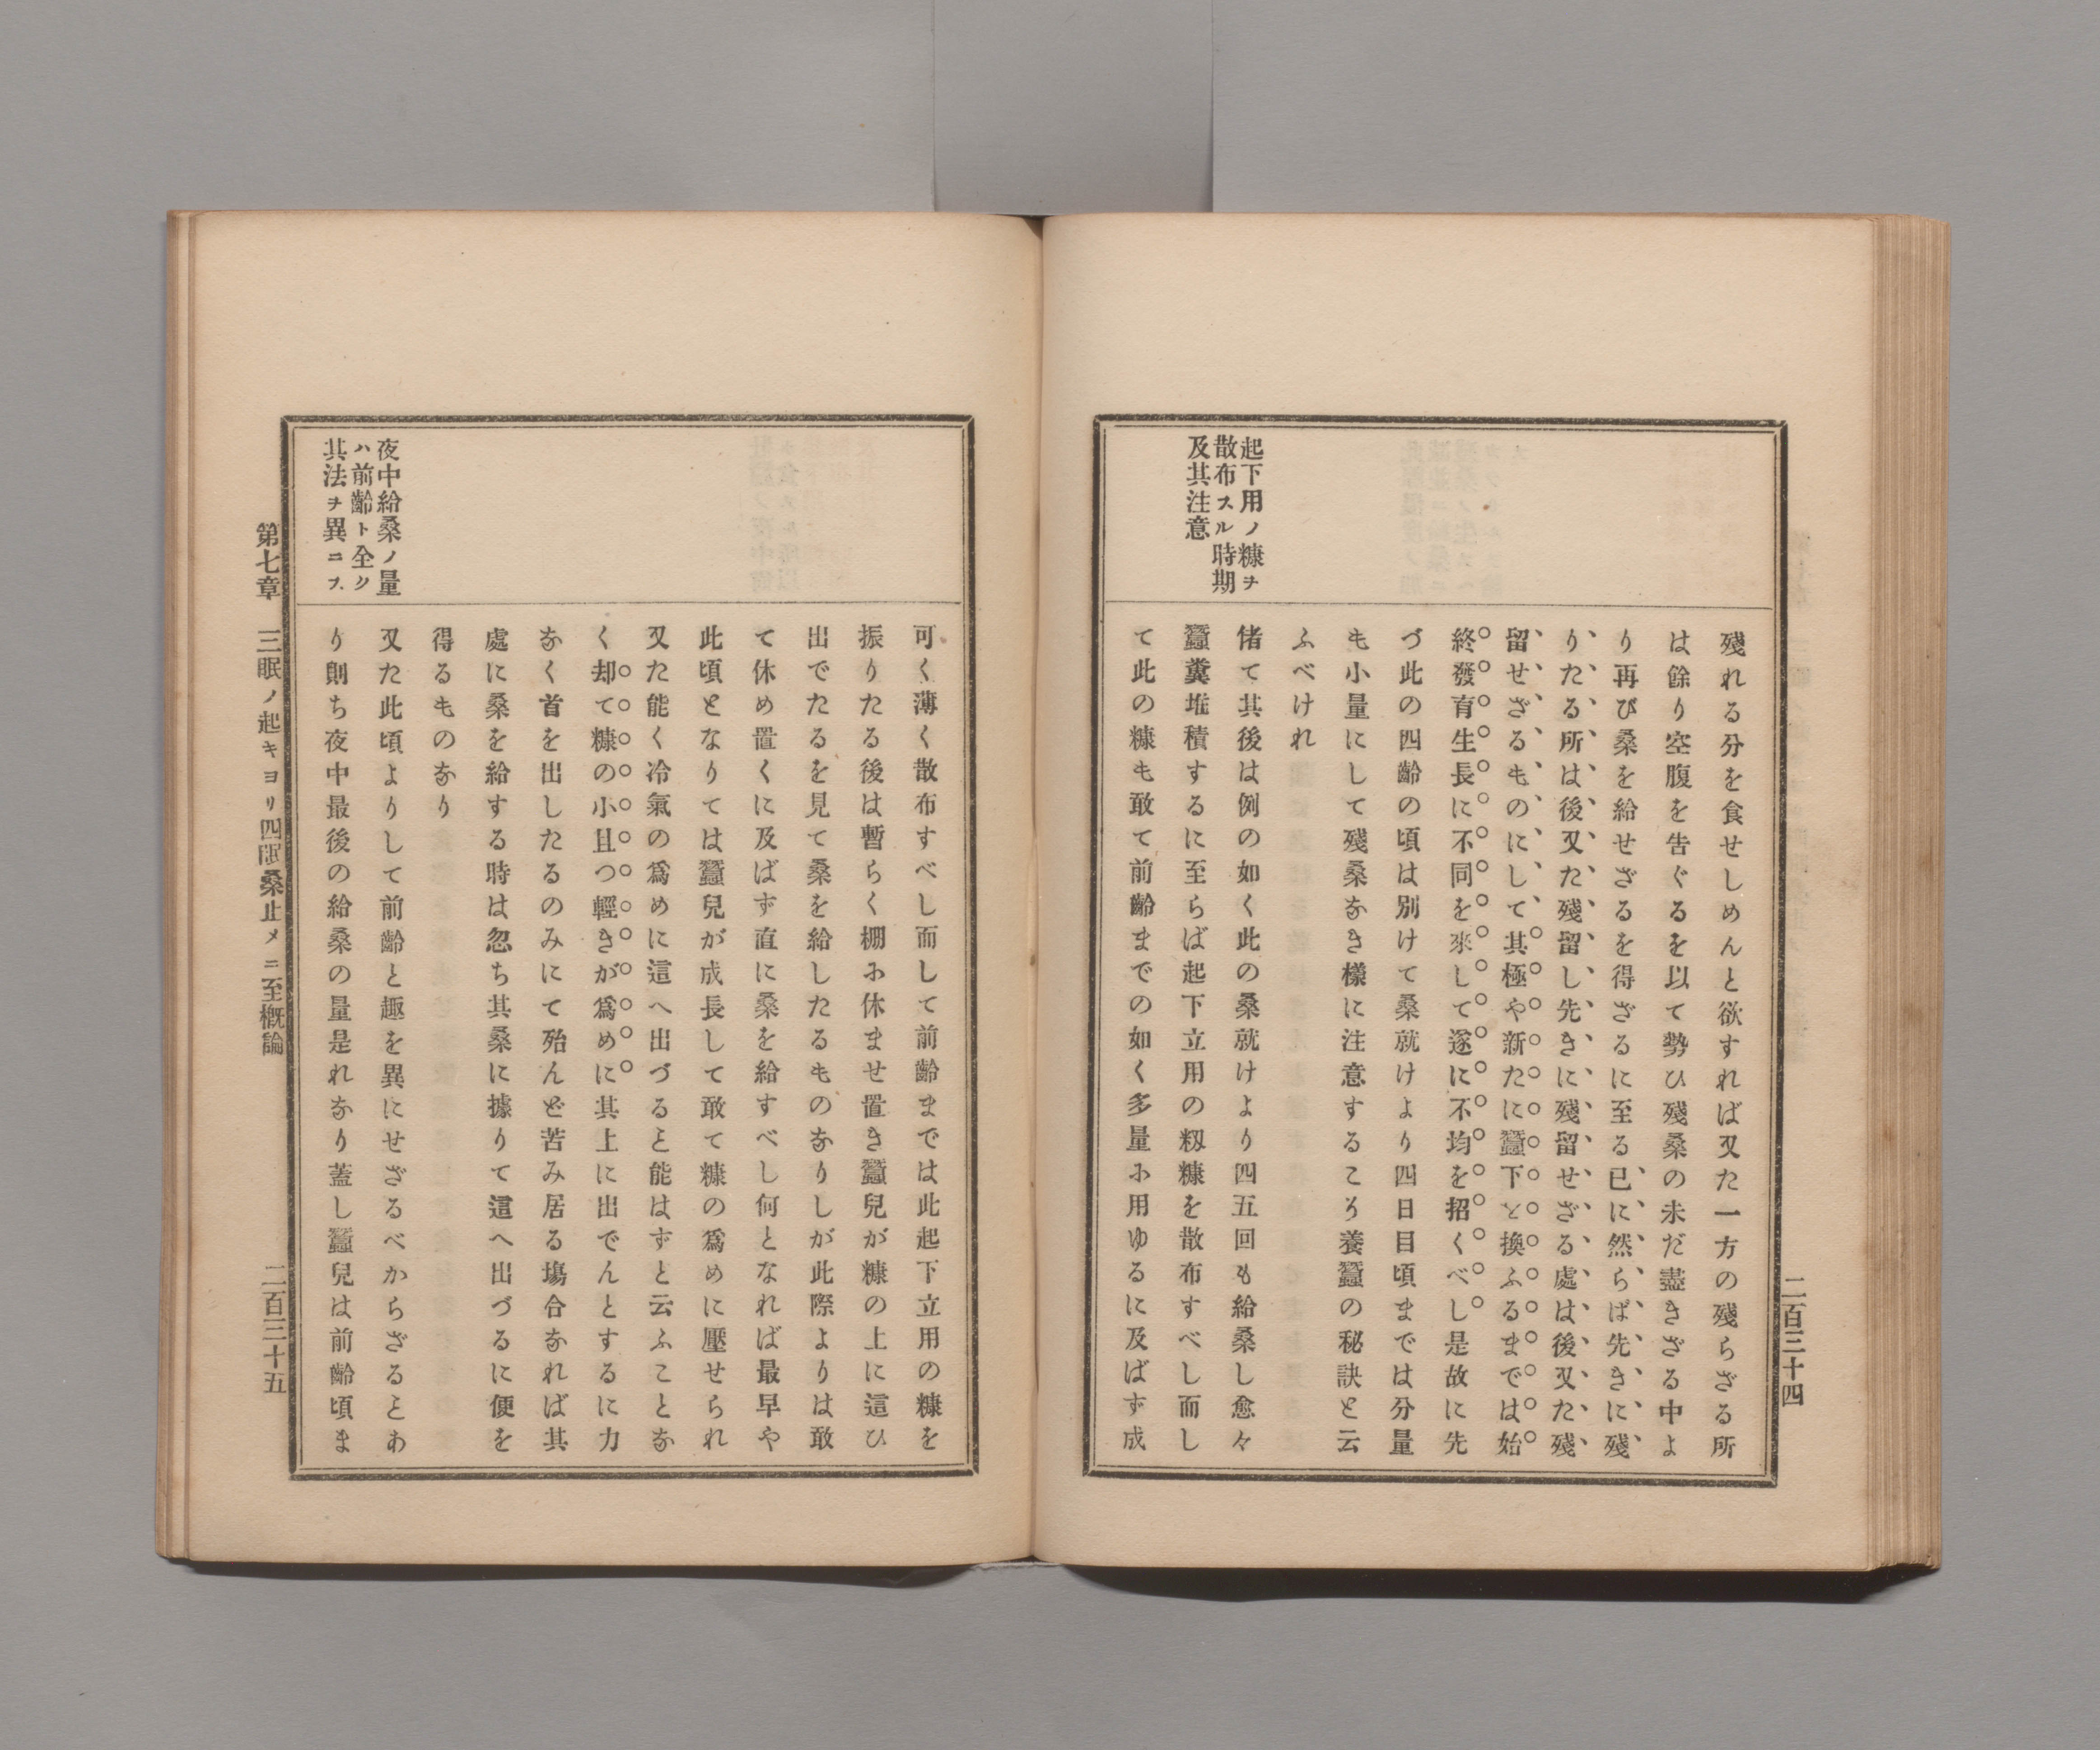 二百三十四
起下用ノ糠ヲ
散布スル時期
及其注意
殘れる分を食せしめんと欲すれば又た一方の殘らざる所
は餘り空腹を告ぐるを以て勢ひ殘桑の未だ盡きざる中よ
り再び桑を給せざるを得ざるに至る已に然らば先きに殘
りたる所は後又た殘留し先きに殘留せざる處は後又た殘
留せざるものにして其極や新たに蠶下と換ふるまでは始
終發育生長に不同を來して遂に不均を招くべし是故に先
づ此の四齡の頃は別けて桑就けより四日目頃までは分量
も小量にして殘桑なき樣に注意するころ養蠶の秘訣と云
ふべけれ
偖て其後は例の如く此の桑就けより四五回も給桑し愈々
蠶糞堆積するに至らば起下立用の籾糠を散布すべし而し
て此の糠も敢て前齡までの如く多量ふ用ゆるに及ばず成
可く薄く散布すべし而して前齡までは此起下立用の糠を
振りたる後は暫らく棚ふ休ませ置き蠶兒が糠の上に這ひ
出でたるを見て桑を給したるものなりしが此際よりは敢
て休め置くに及ばず直に桑を給すべし何となれば最早や
此頃となりては蠶兒が成長して敢て糠の爲めに壓せられ
又た能く冷氣の爲めに這へ出づると能はずと云ふことな
く却て糠の小且つ輕きが爲めに其上に出でんとするに力
なく首を出したるのみにて殆んど苦み居る塲合なれば其
處に桑を給する時は忽ち其桑に據りて這へ出づるに便を
得るものなり
又た此頃よりして前齡と趣を異にせざるべからざるとあ
り則ち夜中最後の給桑の量是れなり蓋し蠶兒は前齡頃ま
夜中給桑ノ量
ハ前齡ト全ク
其法ヲ異ニス
第七章 三眠ノ起キヨリ四眠桑止メニ至概論
二百三十五